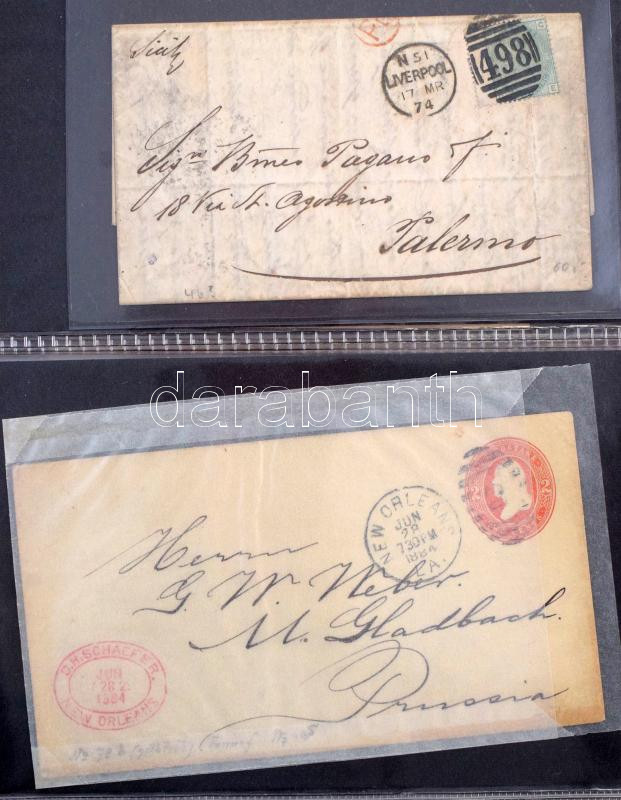 Sicily
PD
N 51
LIVERPOOL
17 MR
74
498
G
E
Sigr
Pagano f.
18 Via St. Agostino
Palermo
darabanth
NEW ORLEANS
JUN
28
730PM
1884
LA.
Herrn
G. W. Weber.
M. Gladbach.
Prussia
D.H. SCHAEFER.
JUN
28
1884
NEW ORLEANS